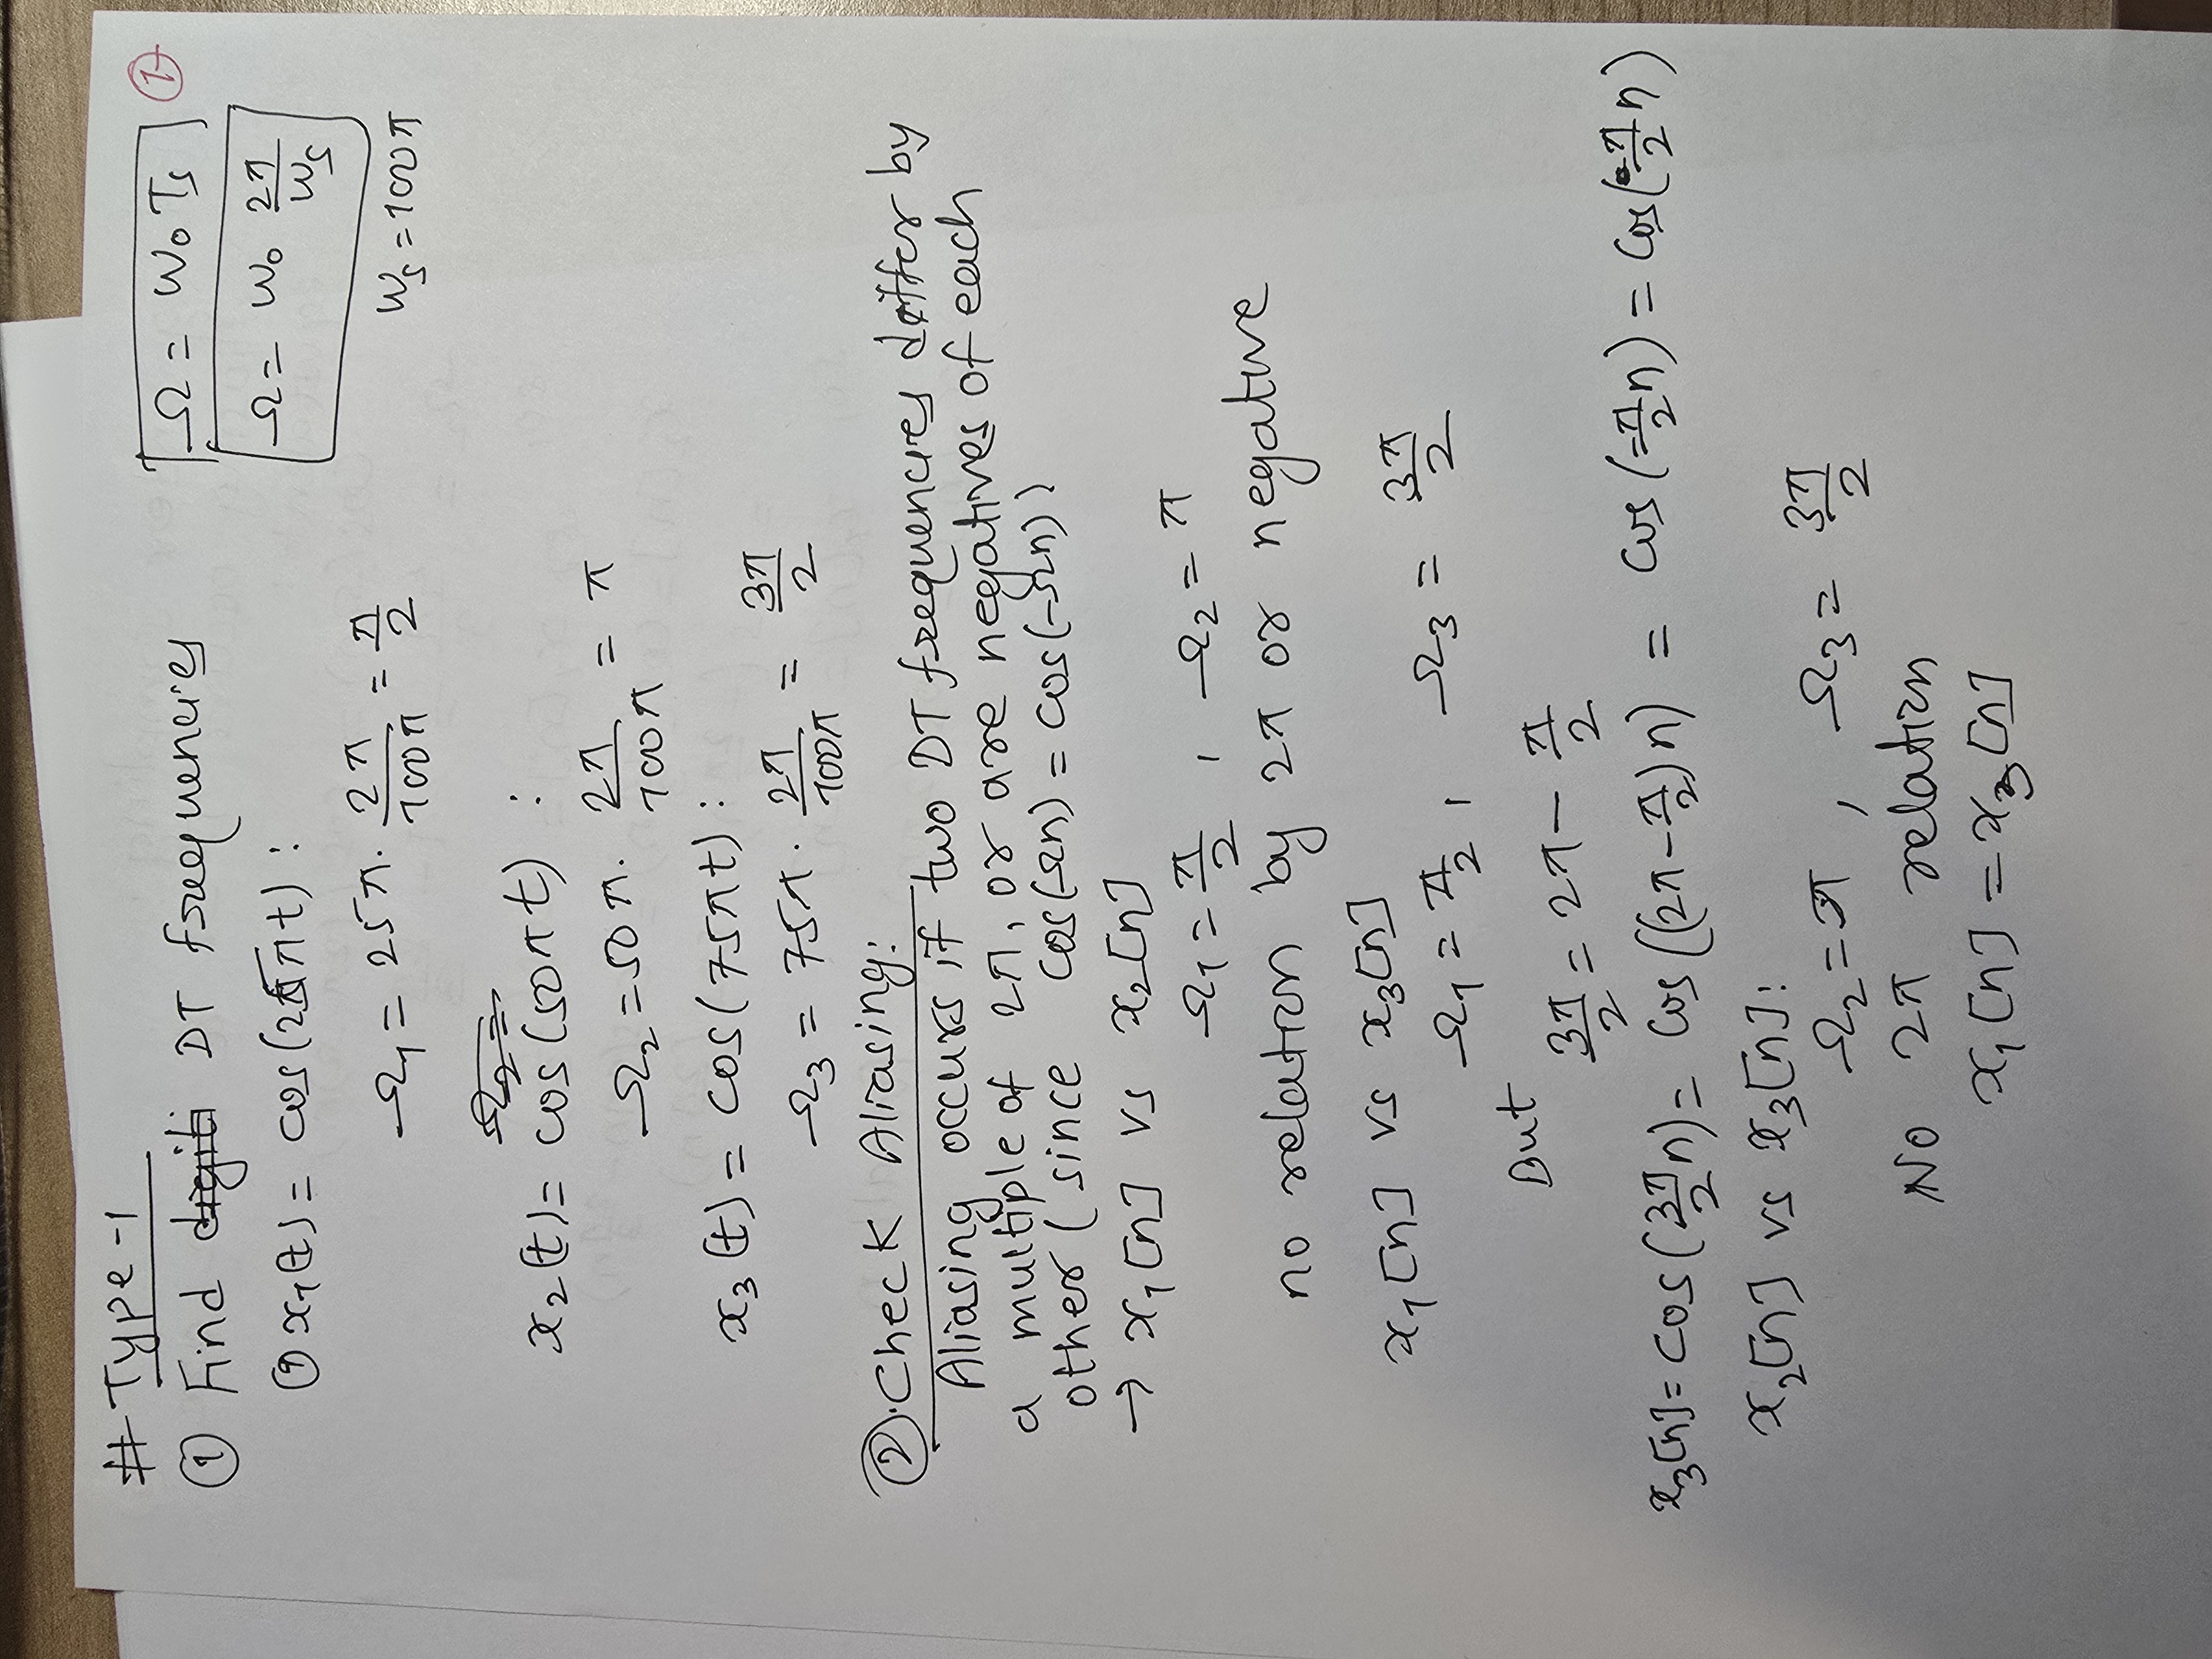 # Type-1
① Find DT frequencies
① x₁(t) = cos(25πt) :
Ω₁ = 25π · 2π/100π = π/2
Ω = W₀ Ts
Ω = W₀ 2π/Ws
Ws = 100π
①
Ω₂ =
x₂(t) = cos(50πt) :
Ω₂ = 50π · 2π/100π = π
x₃(t) = cos(75πt) :
Ω₃ = 75π · 2π/100π = 3π/2
②. Check Aliasing:
Aliasing occurs if two DT frequencies differ by
a multiple of 2π, or are negatives of each
other (since cos(Ωn) = cos(-Ωn))
→ x₁[n] vs x₂[n]
Ω₁ = π/2 , Ω₂ = π
no relation by 2π or negative
x₁[n] vs x₃[n]
Ω₁ = π/2 , Ω₃ = 3π/2
But
3π/2 = 2π - π/2
x₃[n] = cos(3π/2 n) = cos((2π - π/2)n) = cos(-π/2 n) = cos(π/2 n)
x₂[n] vs x₃[n]:
Ω₂ = π , Ω₃ = 3π/2
No 2π relation
x₁[n] = x₃[n]